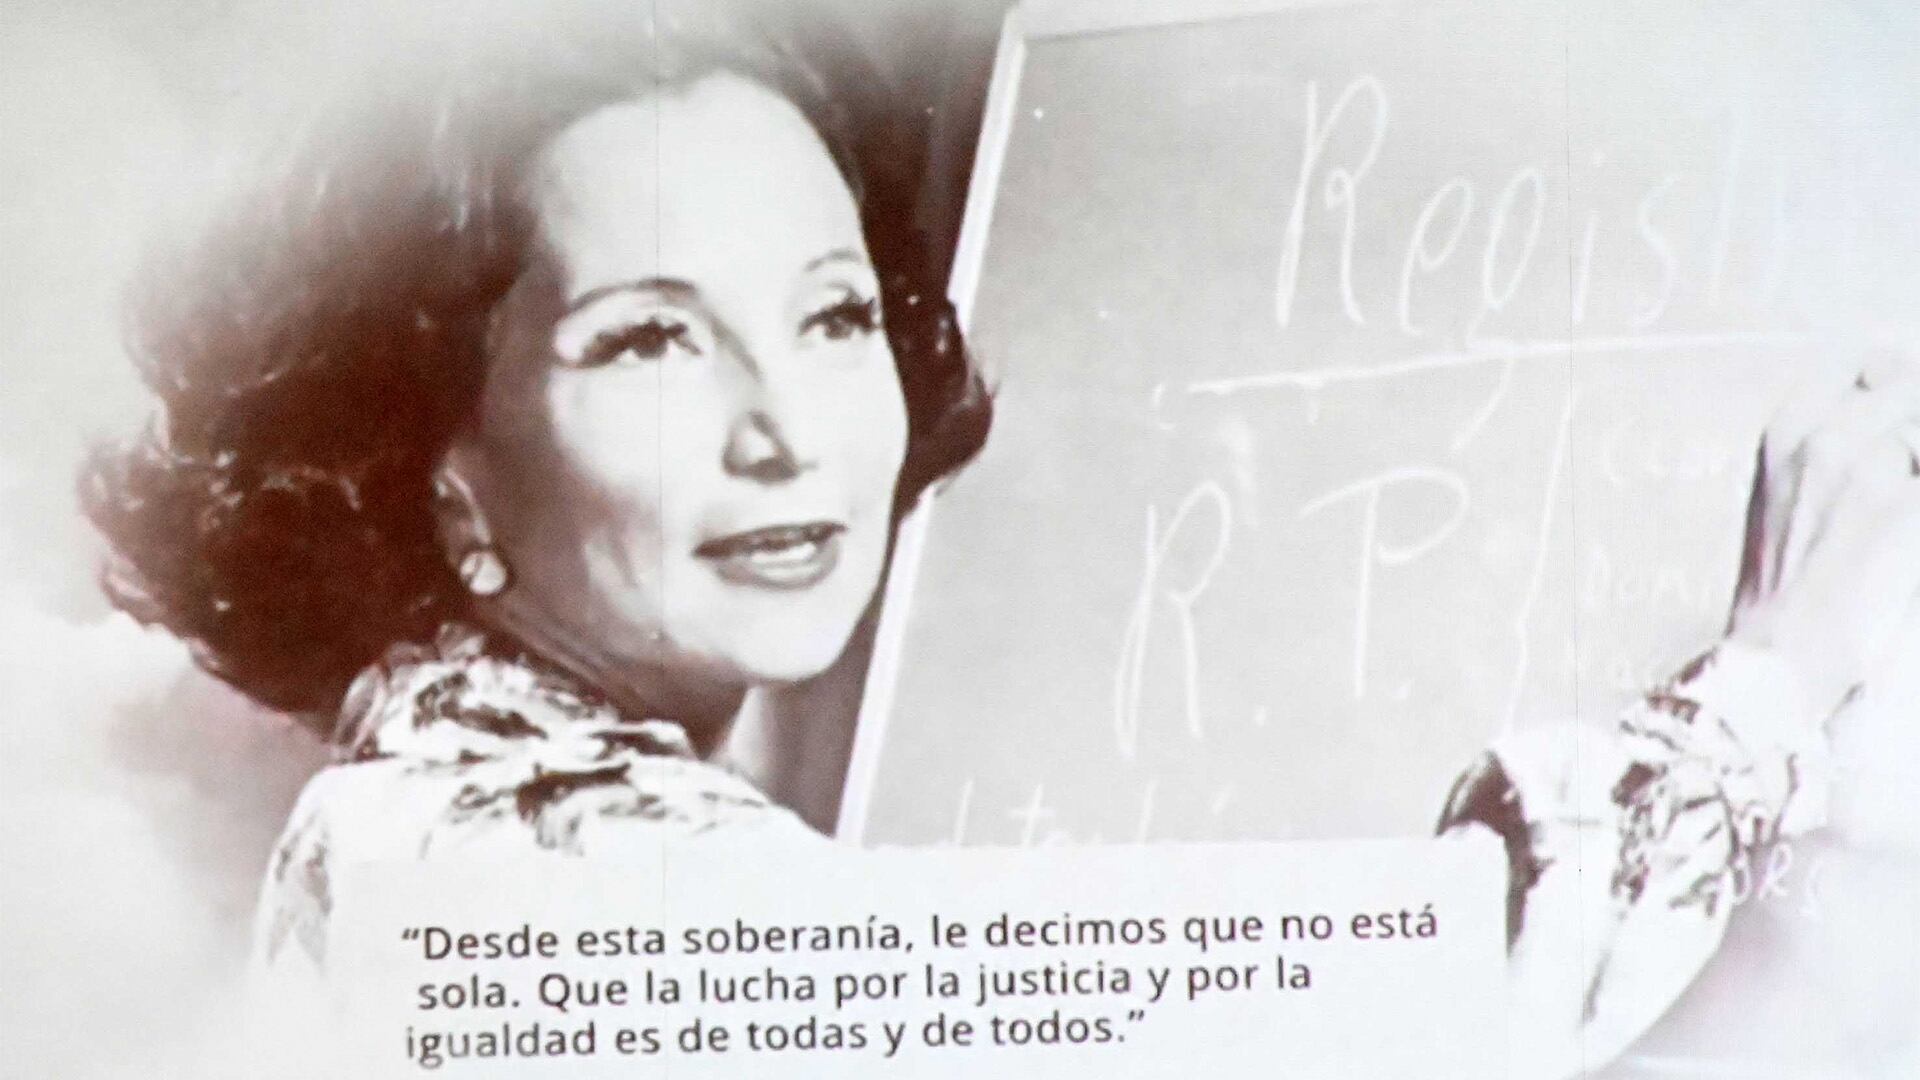 R. P.
“Desde esta soberanía, le decimos que no está
sola. Que la lucha por la justicia y por la
igualdad es de todas y de todos.”